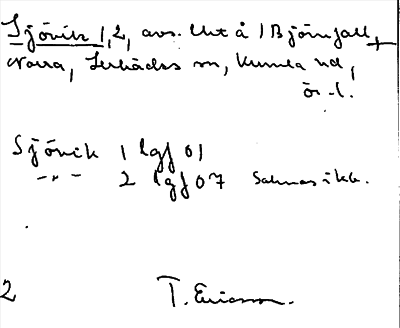 Sjövik 1,2, avs. Utå 1 Björnfall,
Norra, Lerbäcks sn, Kumla hd,
Ör. l.
Sjövik 1 lgf 01
-"- 2 lgf 07 Saknas i kb.
2 T. Ericsson.